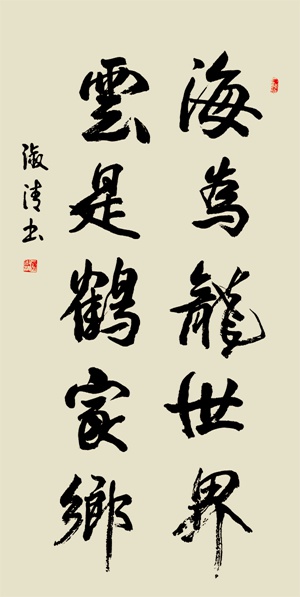 海為龍世界
雲是鶴家鄉
淑清书